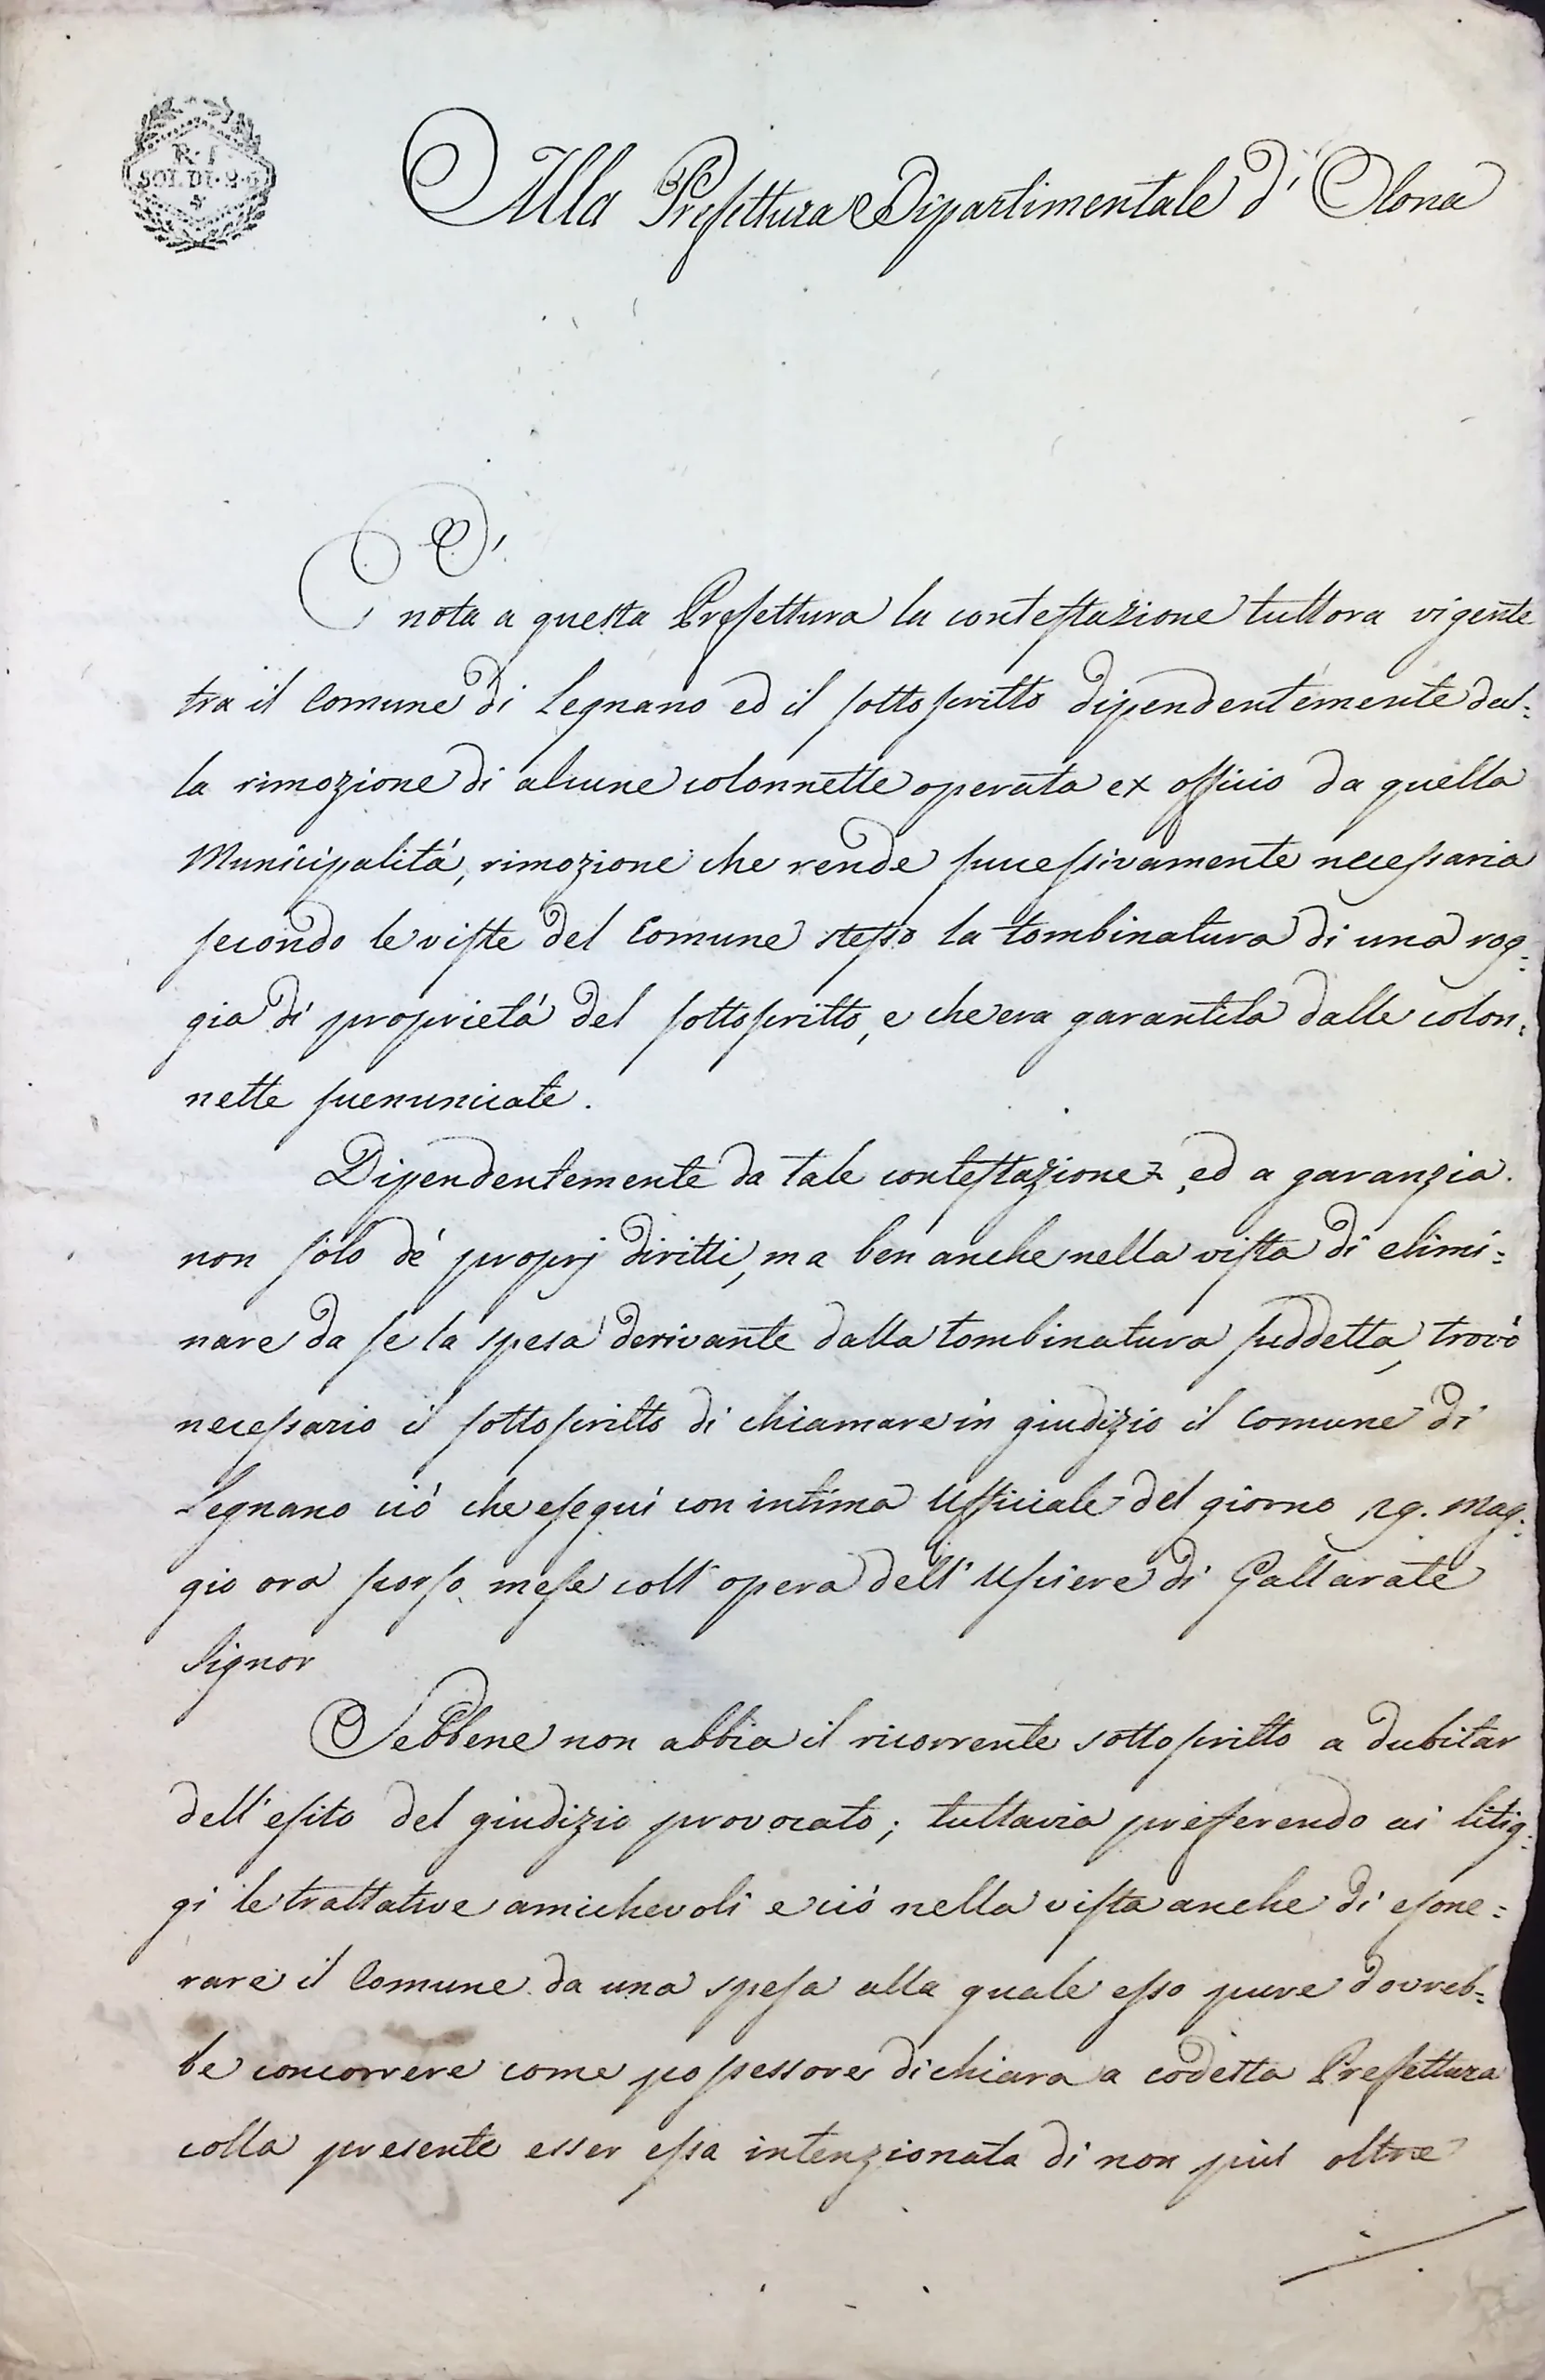 R. I.
SOLDI. 2. 6
Alla Prefettura Dipartimentale d'Olona
É
nota a questa Prefettura la contestazione tuttora vigente
tra il Comune di Legnano ed il sottoscritto dipendentemente dal=
la rimozione di alcune colonnette operata ex officio da quella
Municipalitá, rimozione che rende successivamente necessaria
secondo le viste del Comune stesso la tombinatura di una rog=
gia di proprietá del sottoscritto, e che era garantita dalle colon=
nette
Dipendentemente da tale contestazione, ed a garanzia
non solo de' proprj diritti, ma ben anche nella vista di elimi=
nare da se la spesa derivante dalla tombinatura suddetta, trovò
necessario il sottoscritto di chiamare in giudizio il Comune di
Legnano ció che eseguì con intima Ufficiale del giorno 29. Mag=
gio ora scorso mese coll'opera dell'Usciere di Gallarate
Signor
Sebbene non abbia il ricorrente sottoscritto a dubitar
dell'esito del giudizio provocato; tuttavia preferendo ai litig=
gi le trattative amichevoli e ció nella vista anche di esone=
rare il Comune da una spesa alla quale esso pure dovreb=
be concorrere come possessore dichiara a codesta Prefettura
colla presente esser essa intenzionata di non più oltre